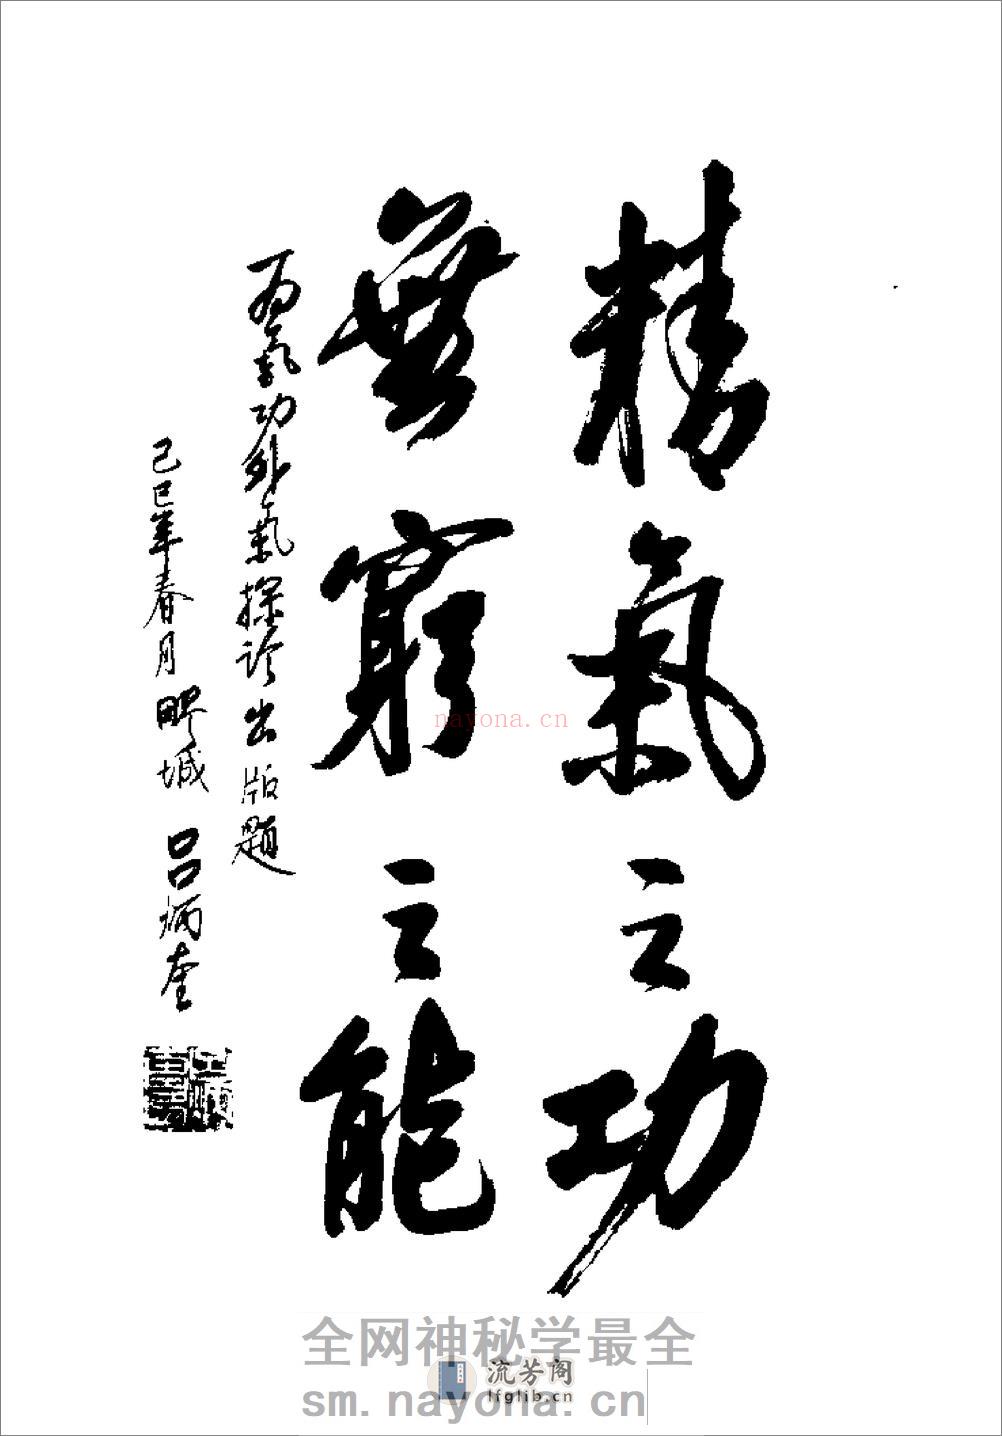 精氣之功
無窮之能
为氣功外氣探诊出版題
己巳年春月 吕炳奎
nayona.cn
全网神秘学最全
流芳阁
lfglib.cn
sm.nayona.cn